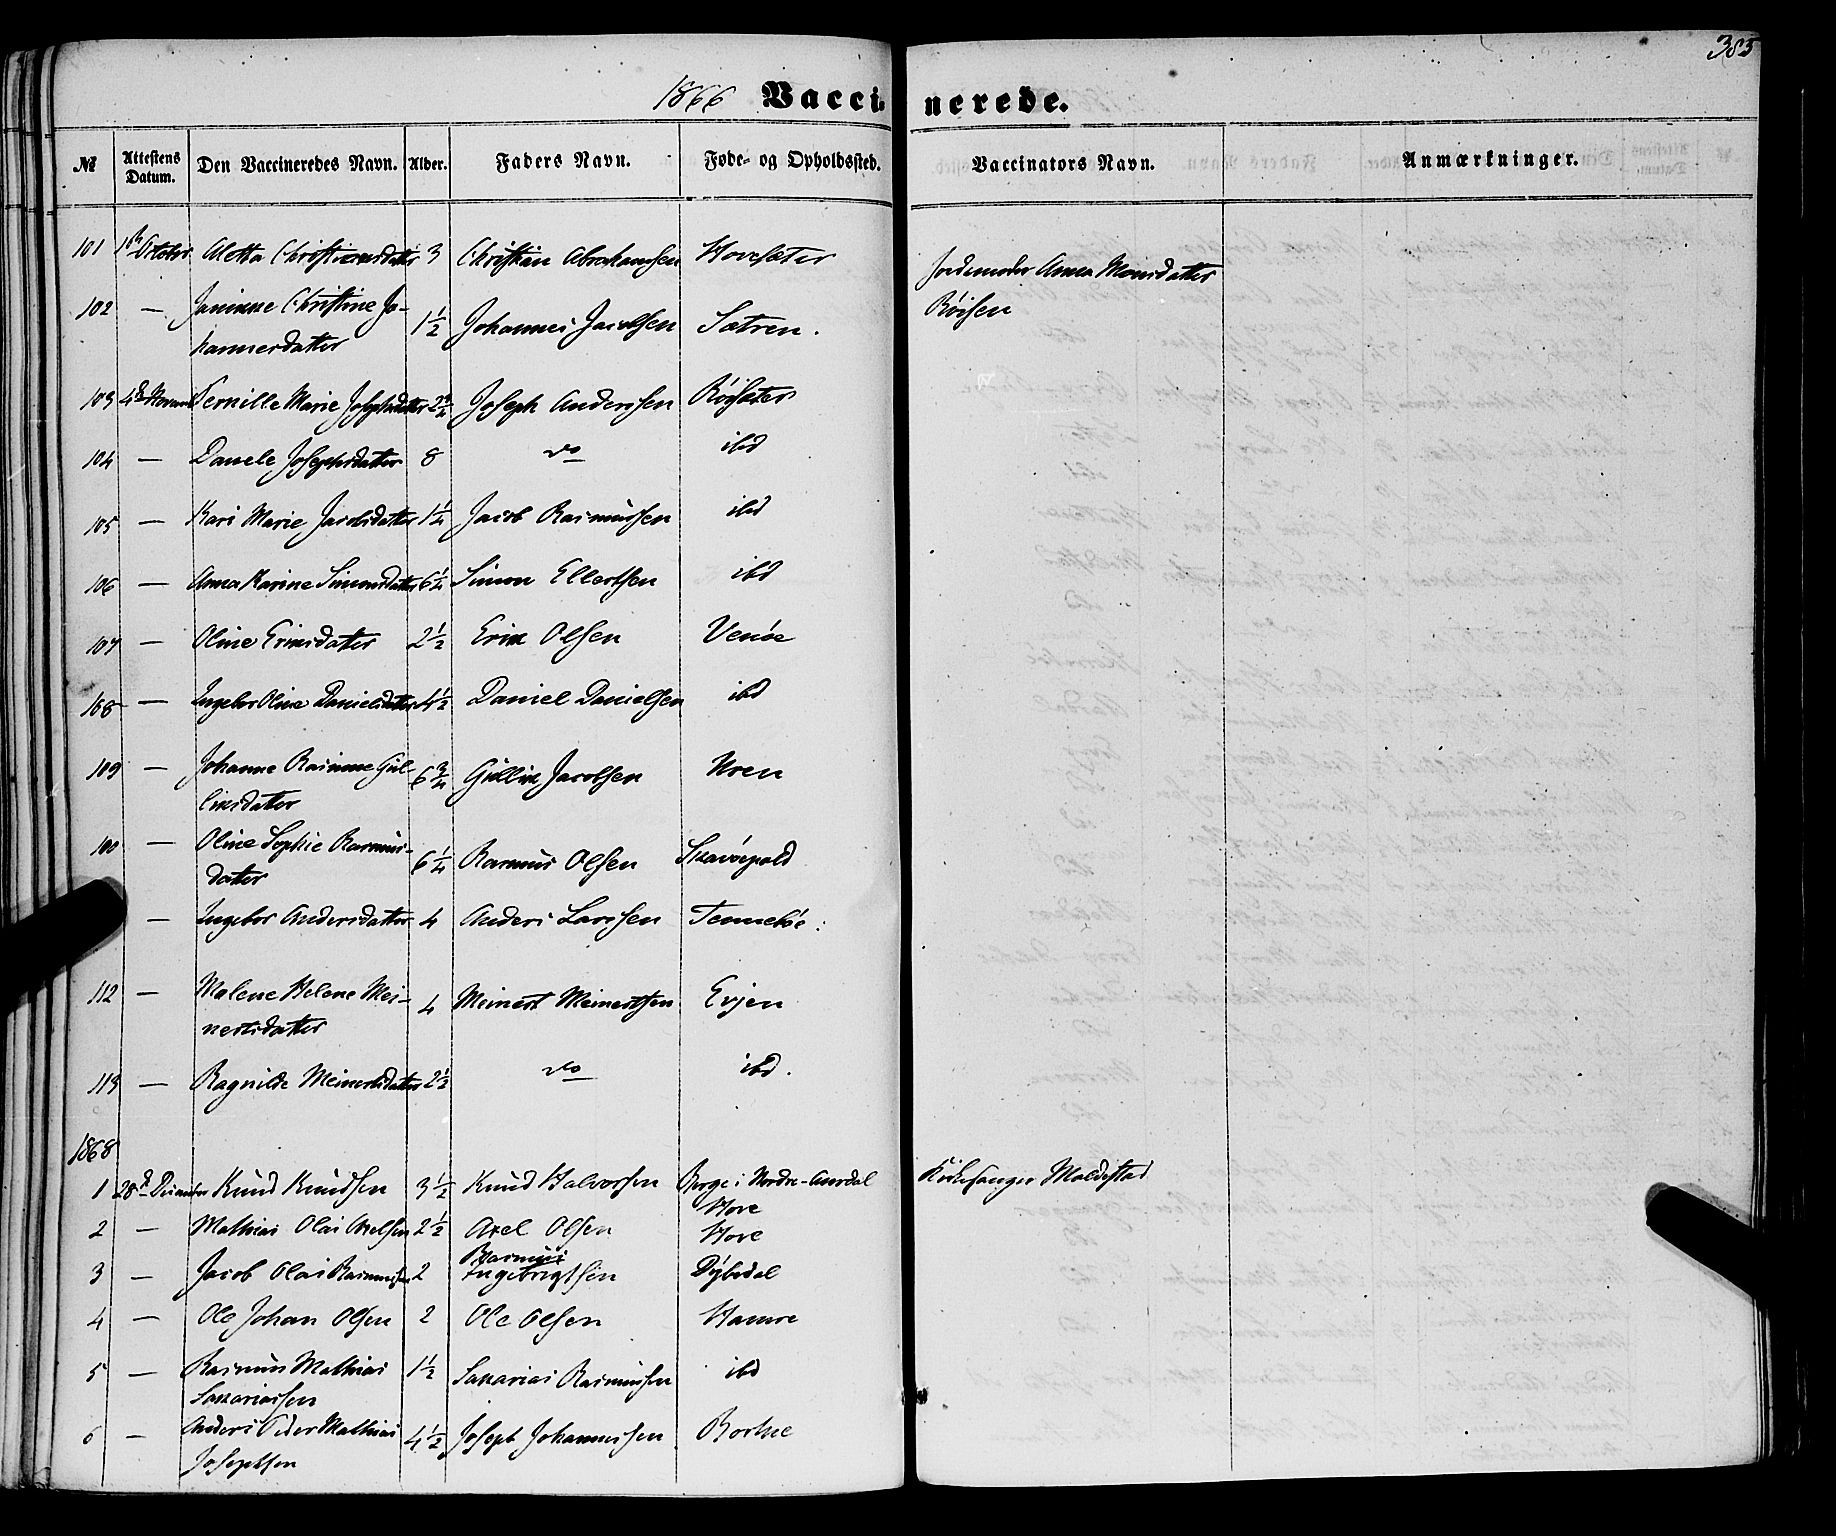 385
1866 Vaccinerede.
№ Attestens Datum. Den Vaccineredes Navn. Alder. Faders Navn. Føde- og Opholdssted. Vaccinators Navn. Anmærkninger.
101 1ste October Aletta Christiansdatter 3 Christian Abrahamsen Hovesæter Jordemoder Anna Monsdatter
Röisen
102 — Janinne Christine Jo-
hannesdatter 1½ Johannes Jacobsen Sætren.
103 4de Novemb Pernille Marie Josephsdatter Joseph Anderssen Röysæter
104 — Daniele Josephsdatter 8 do ibd
105 — Kari Marie Jacobsdatter 1¼ Jacob Rasmussen ibd
106 — Anna Karine Simonsdatter 6¼ Simon Ellertsen ibd
107 — Oline Eriksdatter 2½ Erik Olsen Venöe
108 — Ingebor Oline Danielsdatter 4½ Daniel Danielsen ibd
109 — Johanne Rasmine Gul-
liksdatter 6¾ Gullik Jacobsen Hoen
100 — Oline Sophie Rasmus-
datter 6¼ Rasmus Olsen Skavöepold
— Ingebor Andersdatter 4 Anders Larssen Tenneböe
112 — Malene Helene Mei-
nertsdatter 4 Meinert Meinertsen Evjen
113 — Ragnilde Meinertsdatter 2½ do ibd.
1868
1 28de December Knud Knudsen 3½ Knud Halvorsen Berge i Nordre-Aurdal Kirkesanger Maldestad
Hove
2 — Mathias Olai Axelsen 2½ Axel Olsen Hove
3 — Jacob Olai Rasmussen 2 Rasmus
Ingebrigtsen Dybedal
4 — Ole Johan Olsen 2 Ole Olsen Hamre
5 — Rasmus Mathias
Sakariassen 1½ Sakarias Rasmussen ibd
6 — Anders Peder Mathias
Josephsen 4½ Joseph Johannessen Bortne